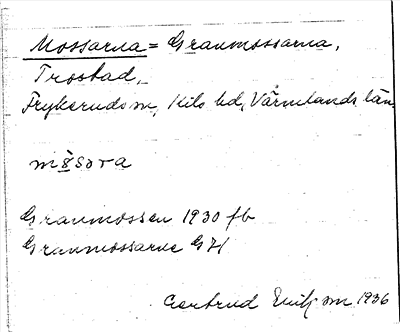 Mossarna = Granmossarna,
Trostad,
Frykeruds sn, Kils hd, Värmlands län.
måsara
Granmossen 1930 fb
Granmossarne GH
Gertrud sm 1936